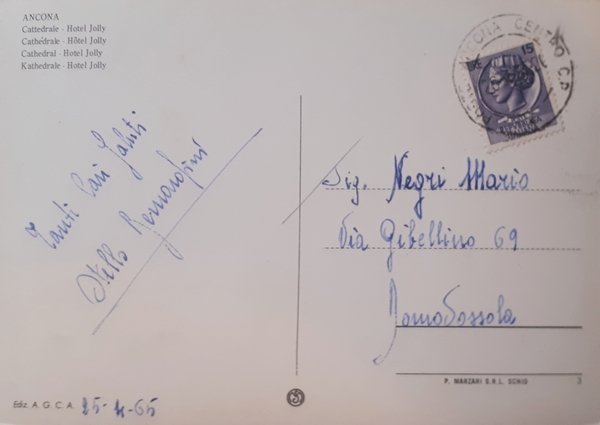 ANCONA
Cattedrale - Hotel Jolly
Cathédrale - Hôtel Jolly
Cathedral - Hotel Jolly
Kathedrale - Hotel Jolly
ANCONA CENTRO C.P.
15
Tanti Cari Saluti
Stello
Sig. Negri Mario
Via Gibellino 69
Domodossola
P. MARZARI S.R.L. SCHIO 3
Ediz. A. G. C. A. 25-4-65